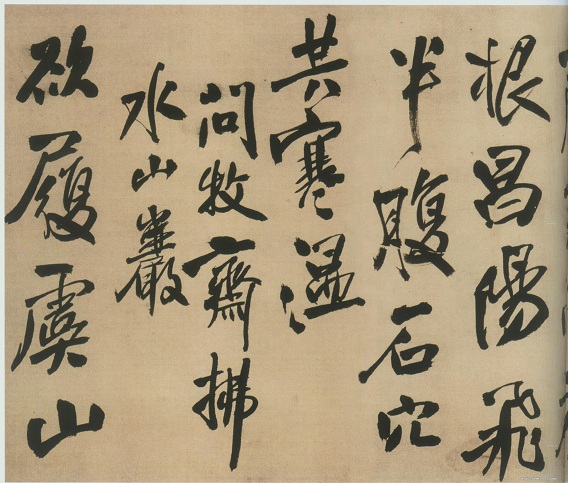 根昌陽飛
半腹石穴
共寒温
問牧齋拂
水山巖
欲履虞山